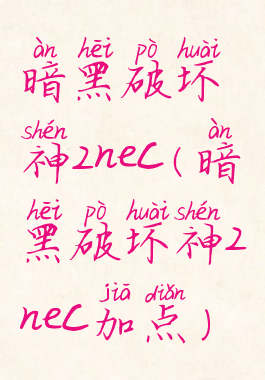 àn hēi pò huài
暗黑破坏
shén àn
神2nec(暗
hēi pò huài shén
黑破坏神2
jiā diǎn
nec加点)